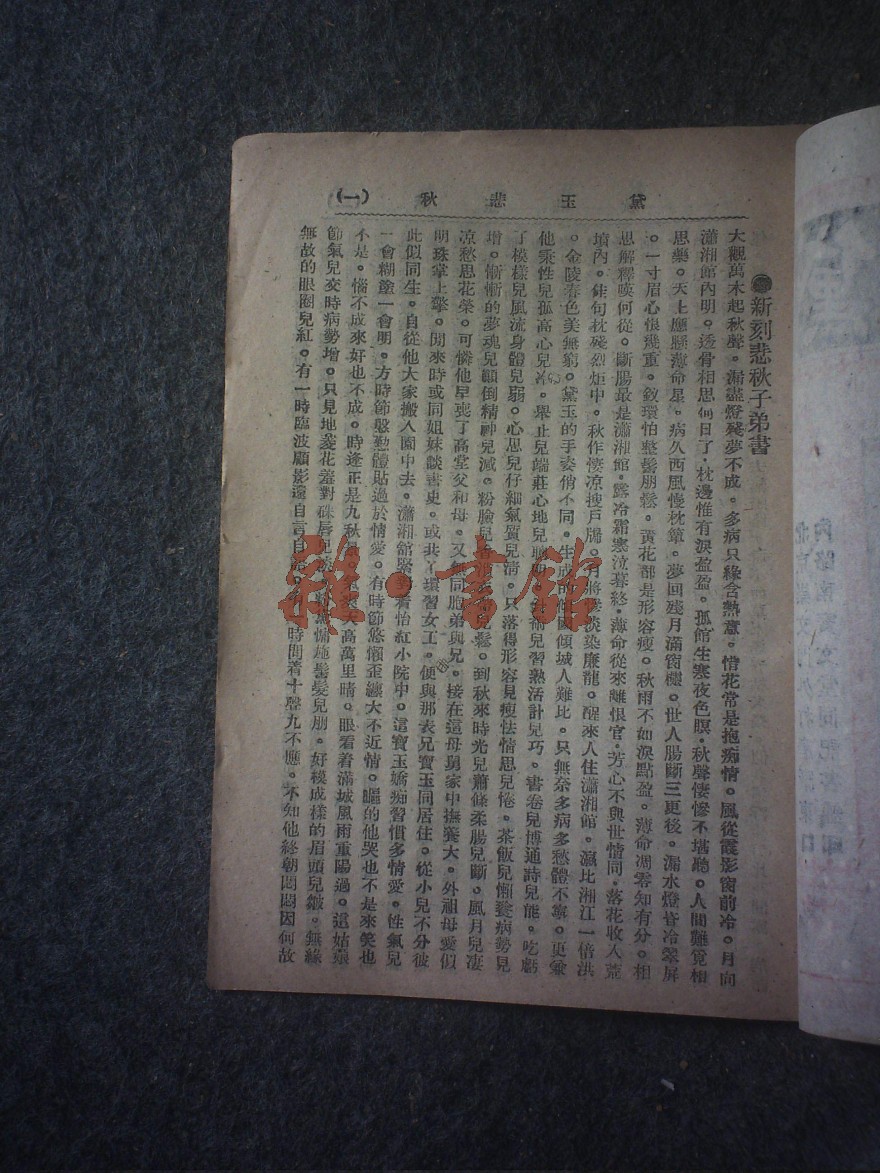 黛玉悲秋 (一)
新刻悲秋子弟書
大觀萬木起秋聲。漏盡燈殘夢不成。多病只緣含熱意。惜花常是抱痴情。風從霞影窗前冷。月向
瀟湘館內明。透骨相思何日了。枕邊惟有淚盈盈。孤館生寒夜色瞑。秋聲悽慘不堪聽。人間難覓相
思藥。天上應懸薄命星。病久西風慢枕簟。夢回殘月滿窗櫺。世人腸斷三更後。漏水燈昏冷翠屏
。一寸眉心恨幾重。釵環怕整鬢朋鬆。黃花都是形容瘦。秋雨不如淚點盈。薄命凋零知有分。相
思解釋嘆何從。斷腸最是瀟湘館。露冷霜寒泣暮終。薄命從來離恨官。芳心不與世情同。落花收入荒
墳內。佳句枕殘烈炬中。秋作悽凉搜戶牖。月將慘淡染廉龍。醒來人住瀟湘館。瀛比湘江一倍洪
。金陵春色美無窮。黛玉的手姿俏不同。生成的傾國傾城人難比。只無奈多病多愁體不寧。更兼
他秉性兒孤高心兒冷。舉止兒端莊心地兒聰明。針黹兒習熟活計兒巧。書卷兒博通詩兒能。吃虧
了模樣兒風流身體兒弱。心思兒仔細氣質兒清。只落得形容見瘦怯情思兒惓。茶飯兒懶餐病勢兒
增。慚慚的夢魂兒顛倒精神兒減。粉臉兒香消兒鬆。到秋來時光兒蕭條柔腸兒斷。風月兒凄
凉愁思花榮。可憐他早喪了高堂父和母。又無同胞弟與兄。接在這母舅家中撫養大。外祖母愛似
明珠掌上擎。閒來時或同姐妹談書史。或共丫環習女工。便與那表兄寶玉同居住。從小兒不分彼
此似同生。自從他大家搬入園中去。瀟湘舘緊着怡紅小院中。這寶玉嬌痴習慣多情愛。性氣兒
一會糊塗一會明。方時節慇勤體貼過於情愛。有時節悠懶歪纏大不近情。嘔的他哭也不是來笑也
不是。惱不成來好也不成。時逢正是九秋高萬里晴。眼看着滿城風雨重陽過。這姑娘
節氣兒交時病勢增。只見地菱花羞對硃唇兒慵施鬢髮兒朋。好模成樣的眉頭兒皺。無緣
無故的眼圈兒紅。有一時臨波顧影還自言自時間着十聲九不應。不知他終朝悶悶因何故